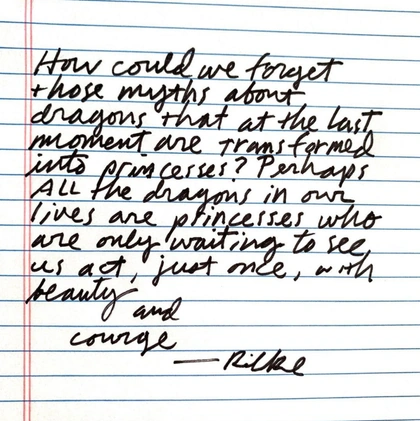 How could we forget
those myths about
dragons that at the last
moment are transformed
into princesses? Perhaps
ALL the dragons in our
lives are princesses who
are only waiting to see
us act, just once, with
beauty
and
courge
—Rilke